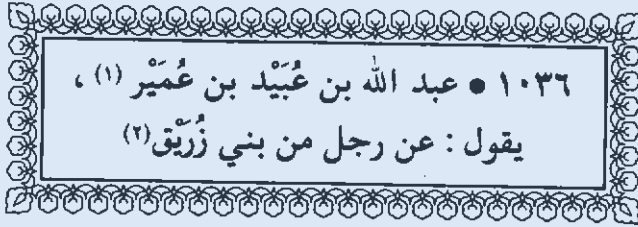 ١٠٣٦ • عبد الله بن عُبَيْد بن عُمَيْر (١) ،
يقول : عن رجل من بني زُرَيْق(٢)